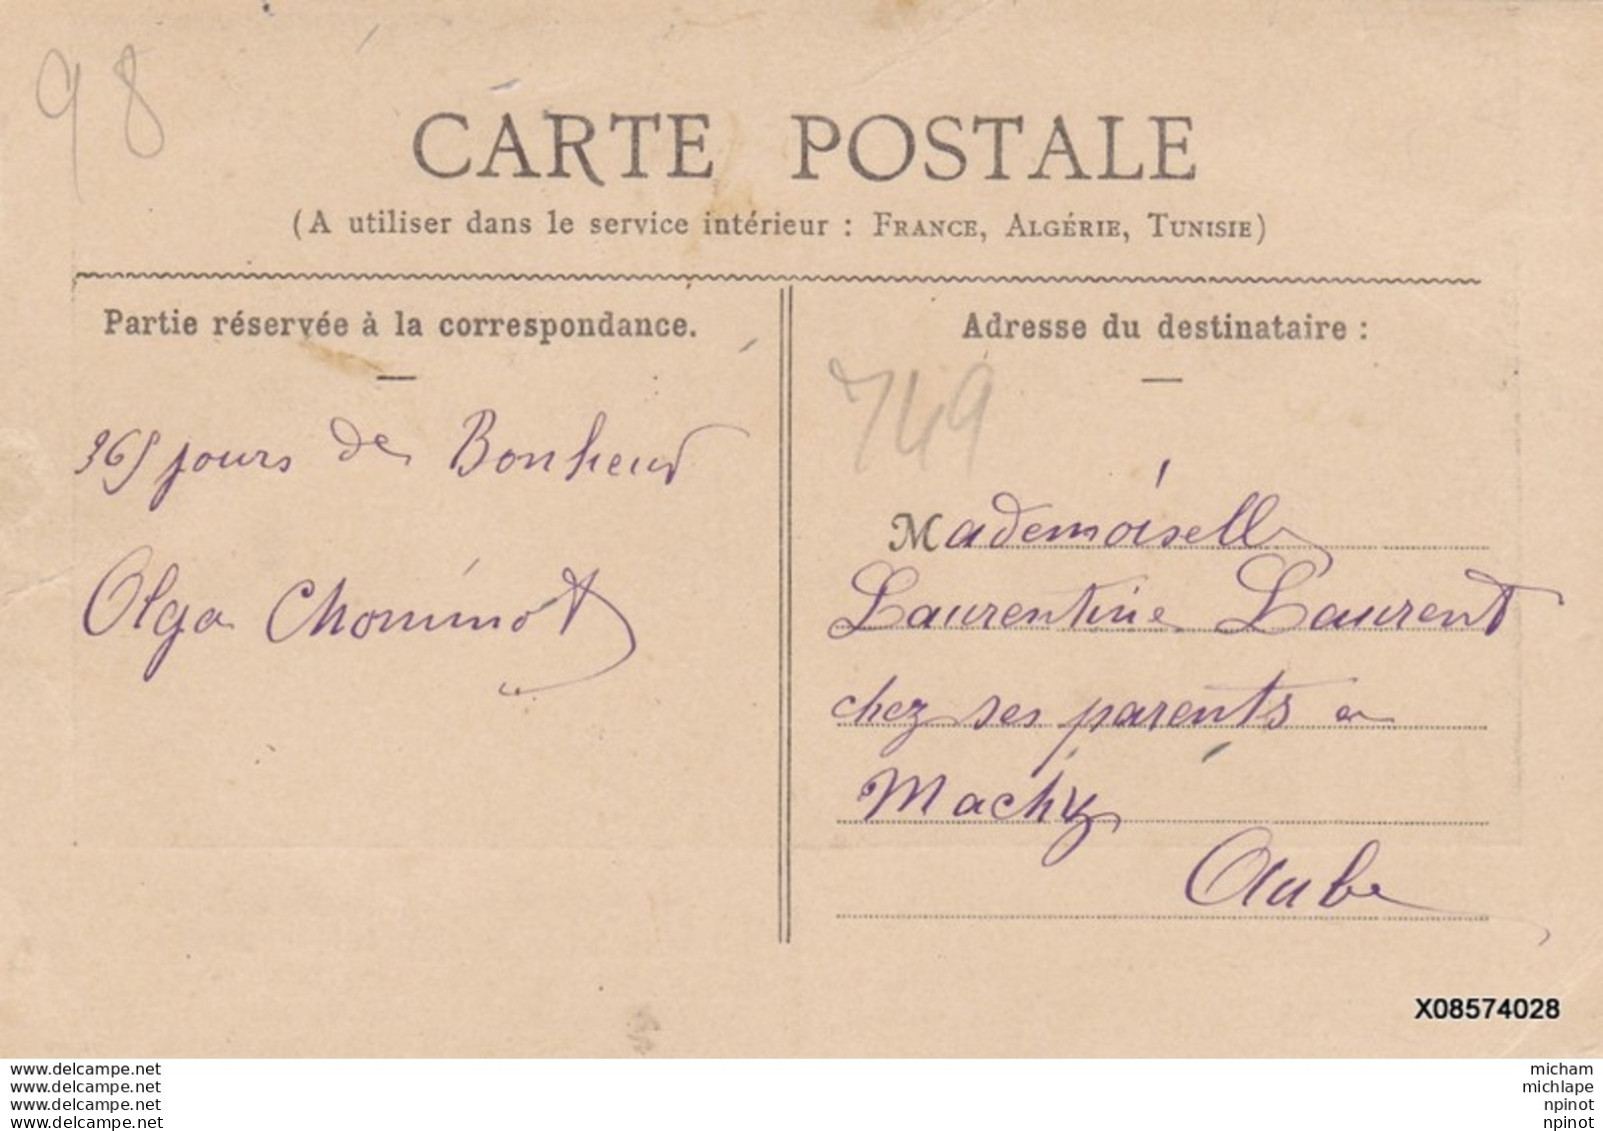 98
CARTE POSTALE
(A utiliser dans le service intérieur : FRANCE, ALGÉRIE, TUNISIE)
Partie réservée à la correspondance.
365 jours de Bonheur
Olga Chominot
Adresse du destinataire :
749
Mademoiselle
Laurentine Laurent
chez ses parents a
Machy
Aube
X08574028
www.delcampe.net
www.delcampe.net
www.delcampe.net
www.delcampe.net
micham
michlape
npinot
npinot